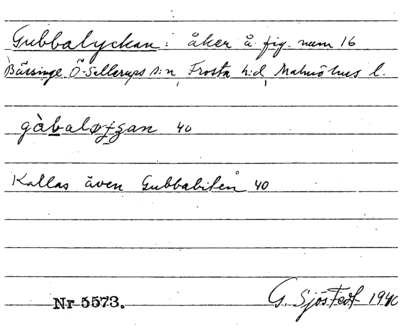 Gubbalyckan: åker å fig. num 16
Bässinge Ö-Sallerups s:n, Frosta h:d, Malmöhus l.
gàbaløɟ̱san 40
Kallas även Gubbabiten 40
Nr 5573. G. Sjöstedt 1940